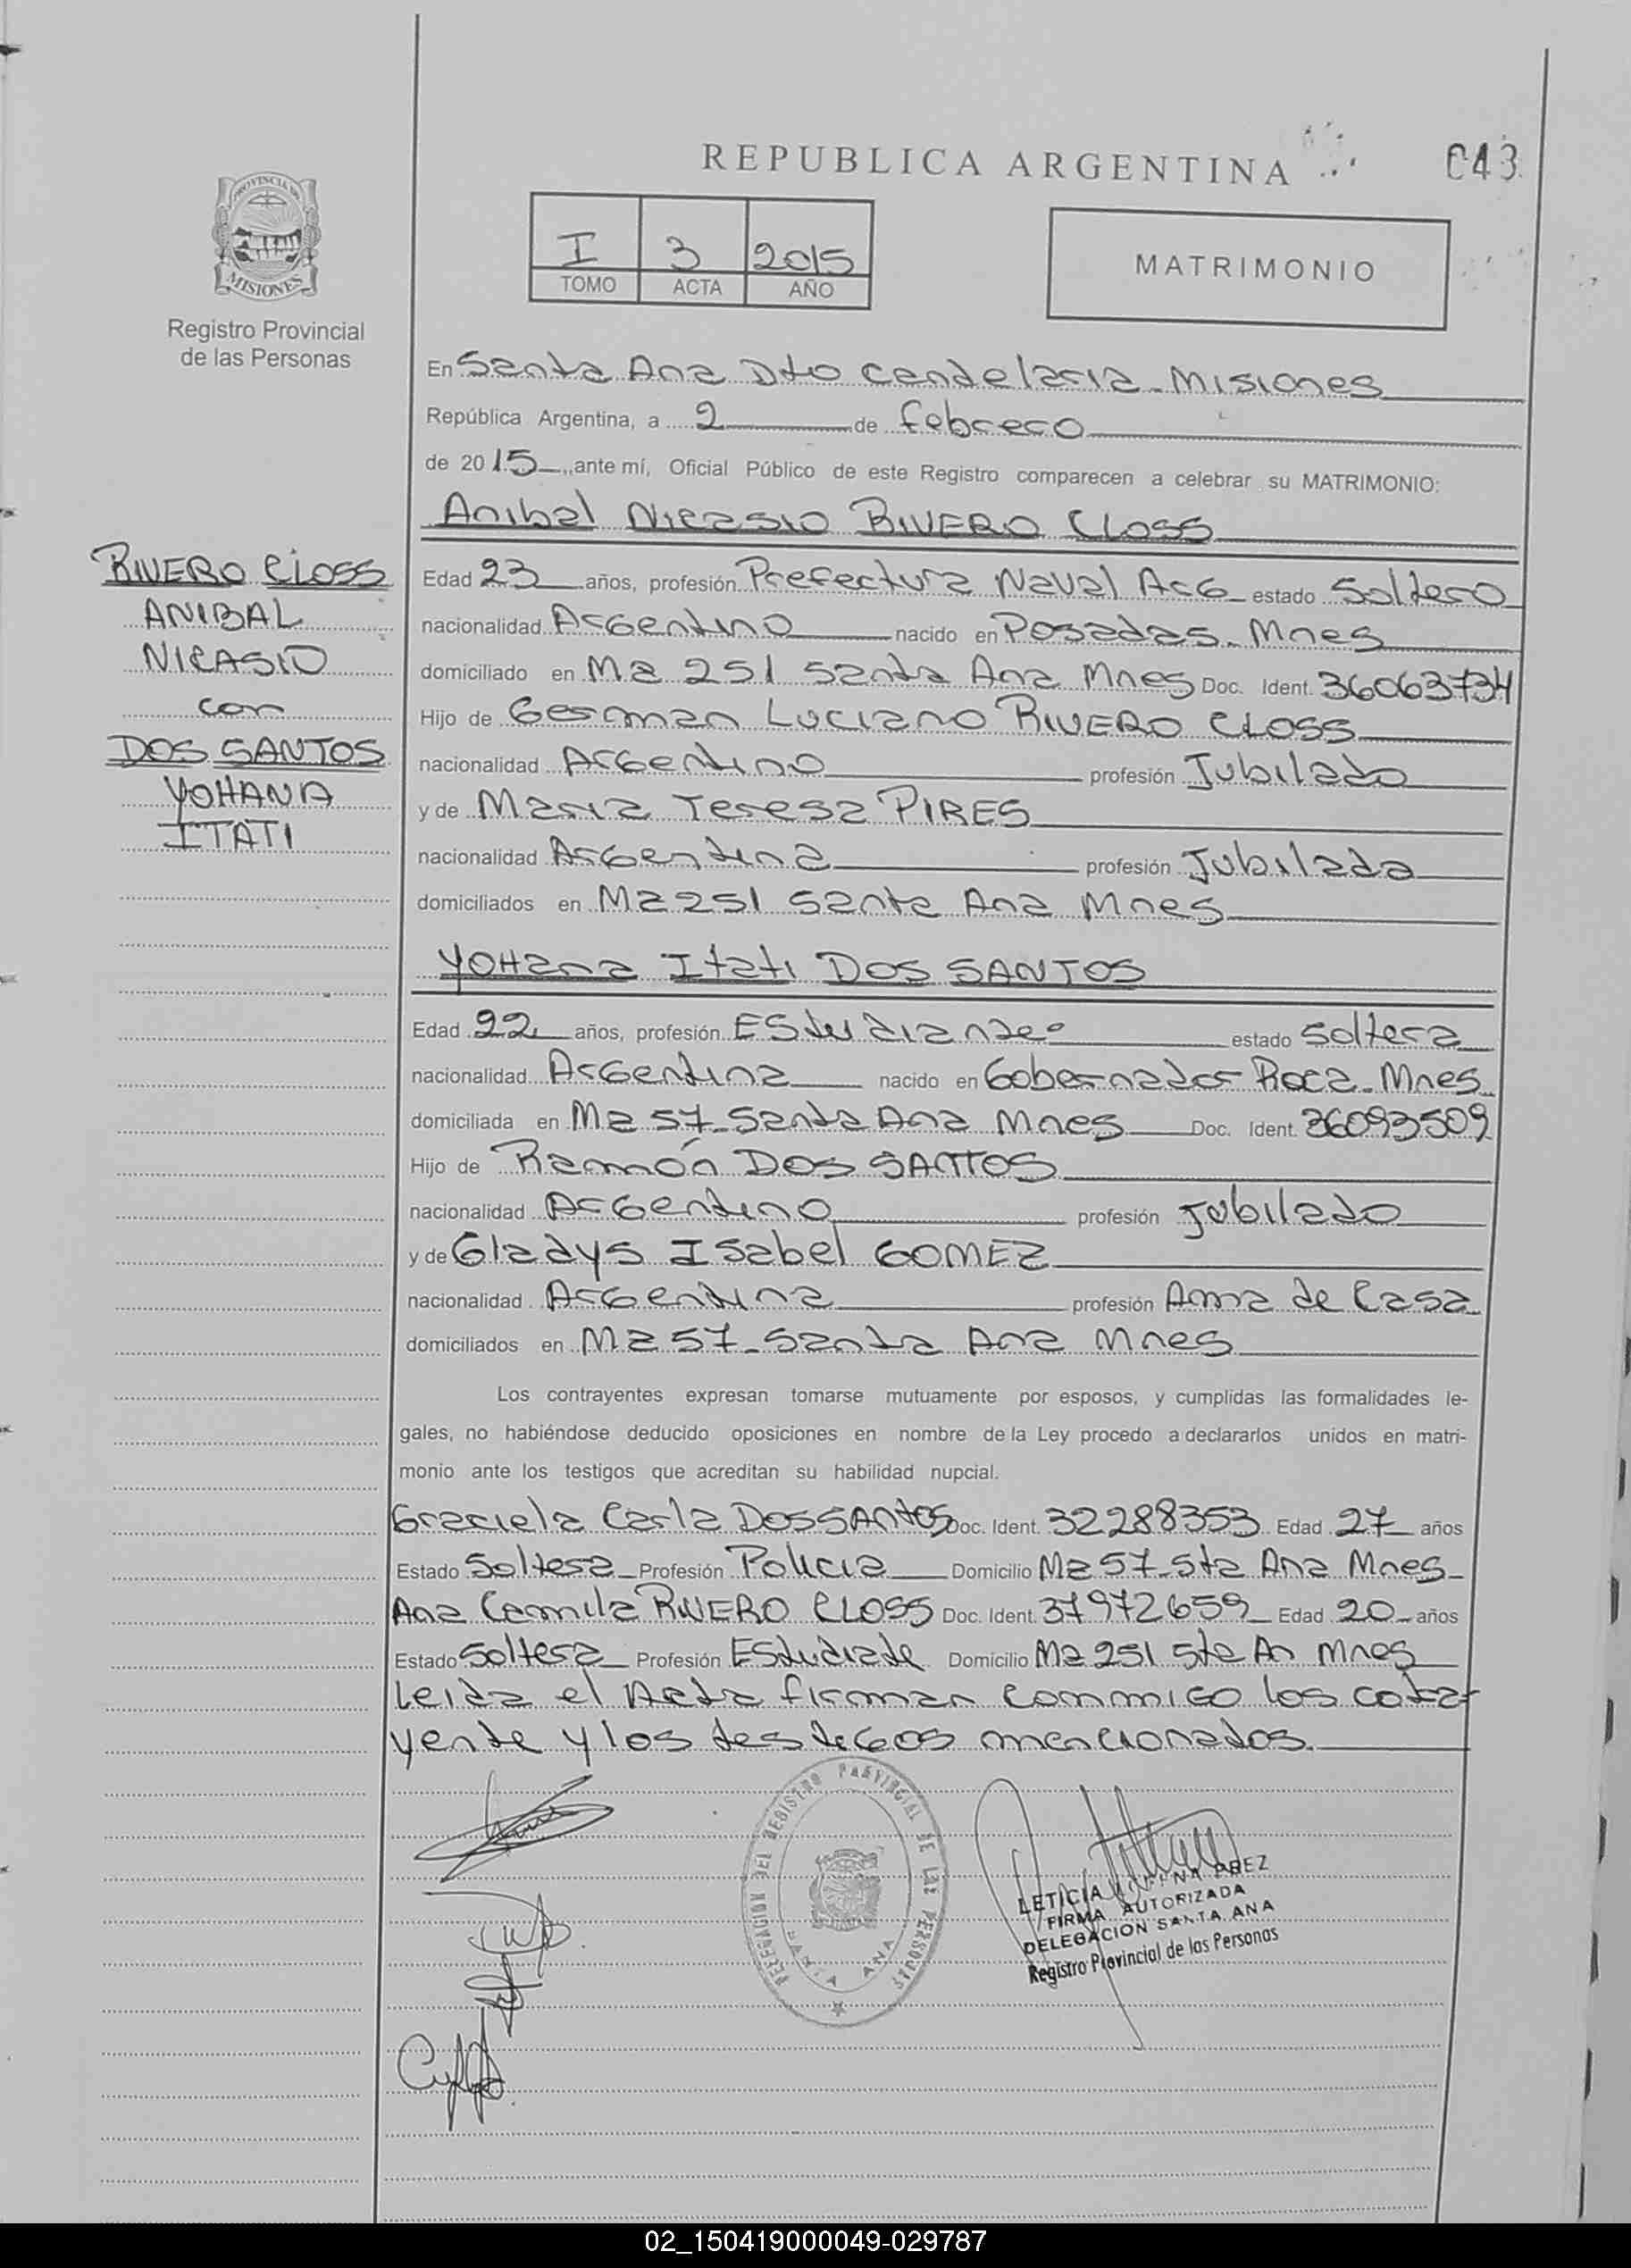 REPUBLICA ARGENTINA
043
PROVINCIA DE
MISIONES
Registro Provincial
de las Personas
I 3 2015
TOMO ACTA AÑO
MATRIMONIO
En Santa Ana Dto Candelaria - Misiones
República Argentina, a 2 de febrero
de 2015, ante mí, Oficial Público de este Registro comparecen a celebrar su MATRIMONIO:
Anibal Nicasio RIVERO CLOSS
RIVERO CLOSS
ANIBAL
NICASIO
con
DOS SANTOS
YOHANA
ITATI
Edad 23 años, profesión Prefectura Naval Arg estado Soltero
nacionalidad Argentino nacido en Posadas - Mnes
domiciliado en Mz 251 Santa Ana Mnes Doc. Ident. 36063734
Hijo de German Luciano RIVERO CLOSS
nacionalidad Argentino profesión Jubilado
y de Maria Teresa PIRES
nacionalidad Argentina profesión Jubilada
domiciliados en Mz 251 Santa Ana Mnes
YOHana Itati DOS SANTOS
Edad 22 años, profesión Estudiante estado soltera
nacionalidad Argentina nacido en Gobernador Roca - Mnes
domiciliada en Mz 57 - Santa Ana Mnes Doc. Ident. 36093509
Hijo de Ramón DOS SANTOS
nacionalidad Argentino profesión jubilado
y de Gladys Isabel GOMEZ
nacionalidad Argentina profesión Ama de Casa
domiciliados en Mz 57 - Santa Ana Mnes
Los contrayentes expresan tomarse mutuamente por esposos, y cumplidas las formalidades le-
gales, no habiéndose deducido oposiciones en nombre de la Ley procedo a declararlos unidos en matri-
monio ante los testigos que acreditan su habilidad nupcial.
Graciela Carla DOS SANtOS Doc. Ident. 32288353 Edad 27 años
Estado Soltera Profesión Policia Domicilio Mz 57 - Sta Ana Mnes
Ana Camila RIVERO CLOSS Doc. Ident. 37972659 Edad 20 años
Estado Soltera Profesión Estudiate Domicilio Mz 251 Sta An Mnes
Leida el Acta firman conmigo los cotra
yente y los testigos mencionados.
DELEGACION DEL REGISTRO PROVINCIAL DE LAS PERSONAS
SANTA ANA
LETICIA PAEZ
FIRMA AUTORIZADA
DELEGACION SANTA ANA
Registro Provincial de las Personas
02_150419000049-029787